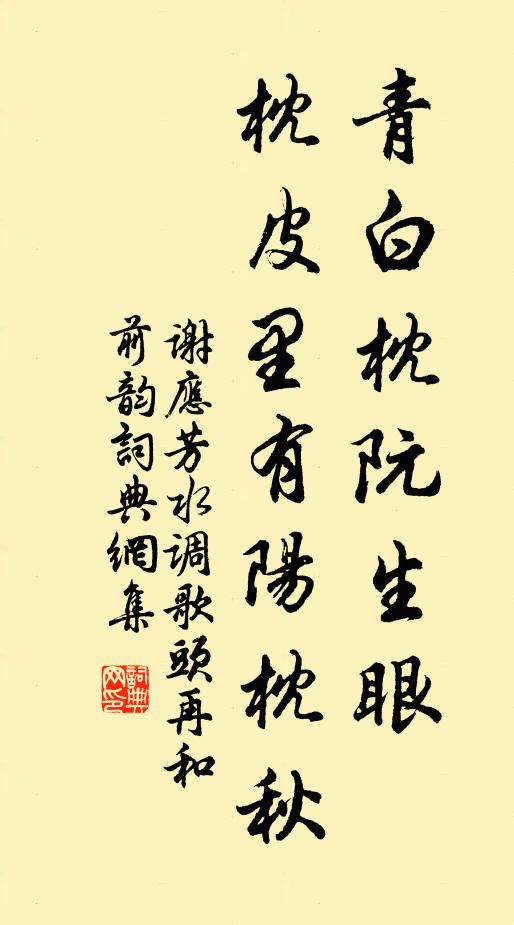 青白枕阮生眼
枕皮里有陽枕秋
谢應芳水调歌頭再和
前韵詞典網集
詞典网印